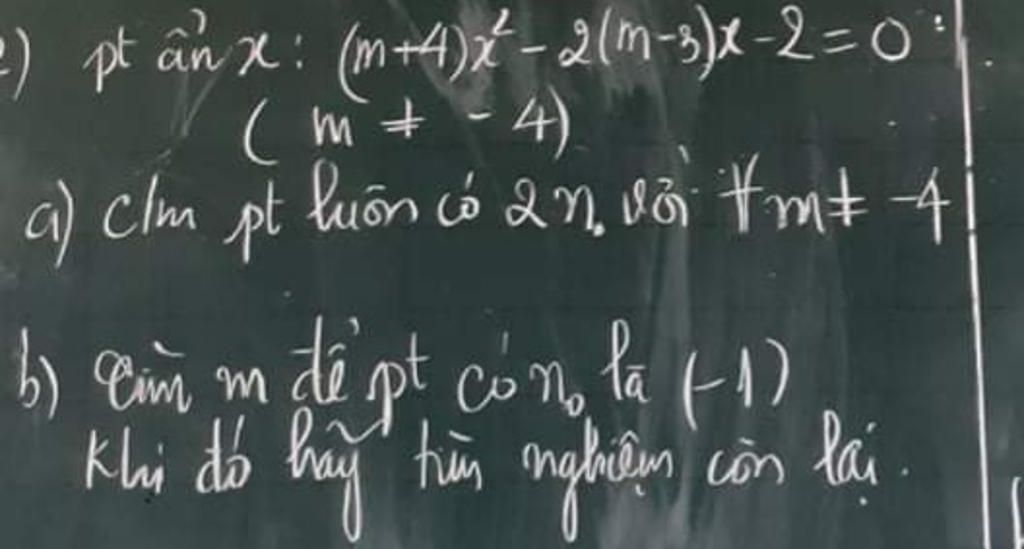 2) pt ẩn x: (m+4)x² - 2(m-3)x - 2 = 0 :
( m ≠ - 4)
a) c/m pt luôn có 2 n₀ với ∀ m ≠ -4
b) Tìm m để pt có n₀ là (-1)
Khi đó hãy tìm nghiệm còn lại.